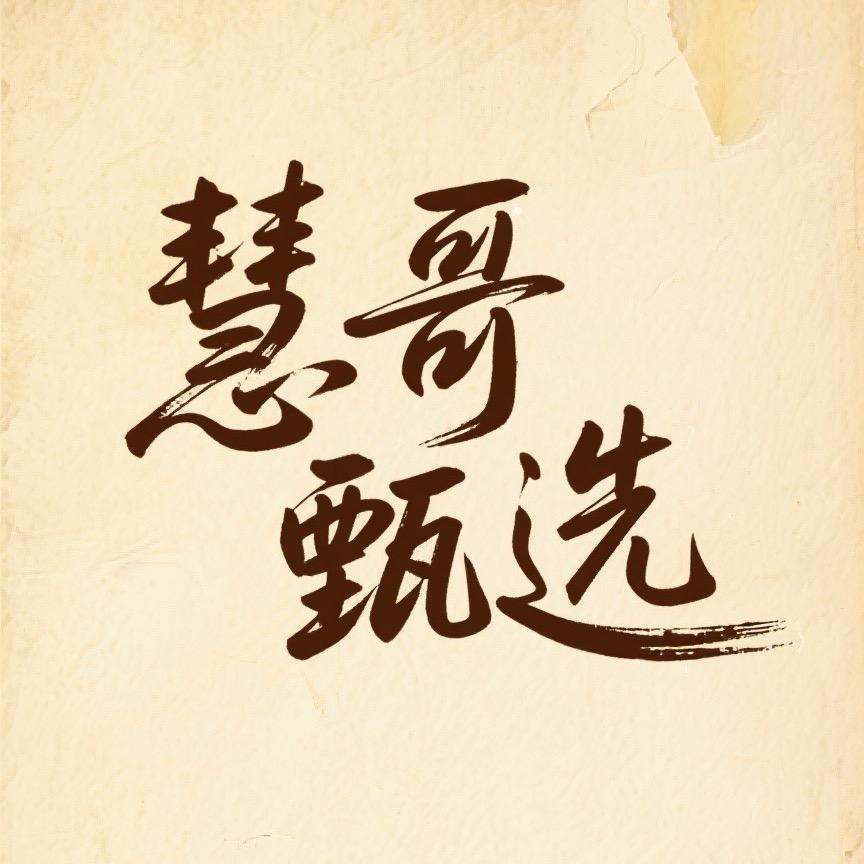 慧哥
甄选